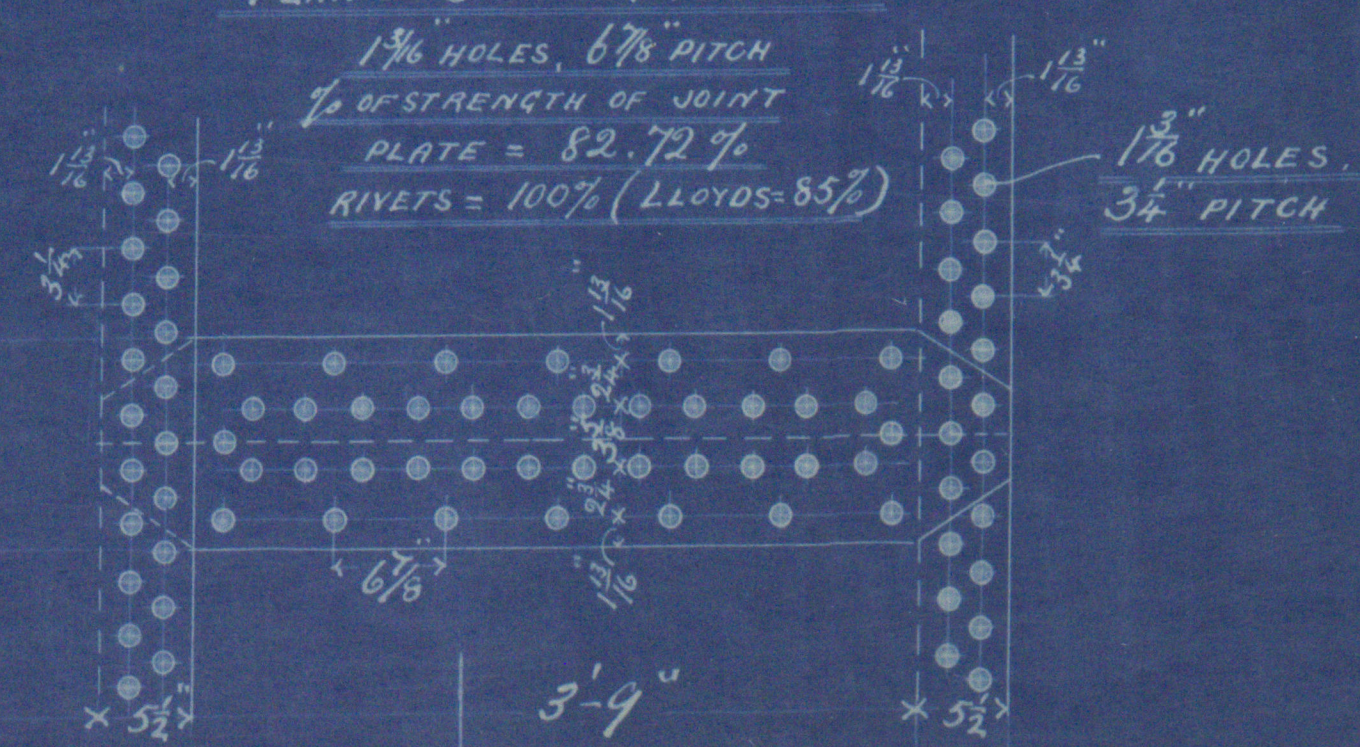 1 3/16" HOLES, 6 7/8" PITCH
% OF STRENGTH OF JOINT
PLATE = 82.72 %
RIVETS = 100% (LLOYDS=85%)
1 13/16"
1 13/16"
1 13/16"
1 13/16"
1 3/16" HOLES.
3 1/4" PITCH
3 1/4"
3 1/4"
1 13/16"
2 3/4"
2 3/4"
1 13/16"
6 7/8"
3'-9"
5 1/2"
5 1/2"